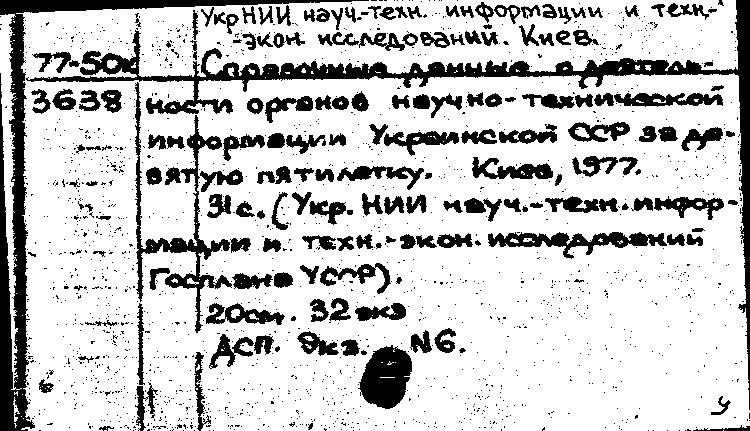 УкрНИИ науч.-техн. информации и техн.-
-экон. исследований. Киев.
77-50к Справочные данные о деятель-
3638 ности органов научно-технической
информации Украинской ССР за де-
вятую пятилетку. Киев, 1977.
31с. (Укр. НИИ науч.-техн. инфор-
мации и техн.-экон. исследований
Госплана УССР).
20см. 32 экз
ДСП. Экз. N6.